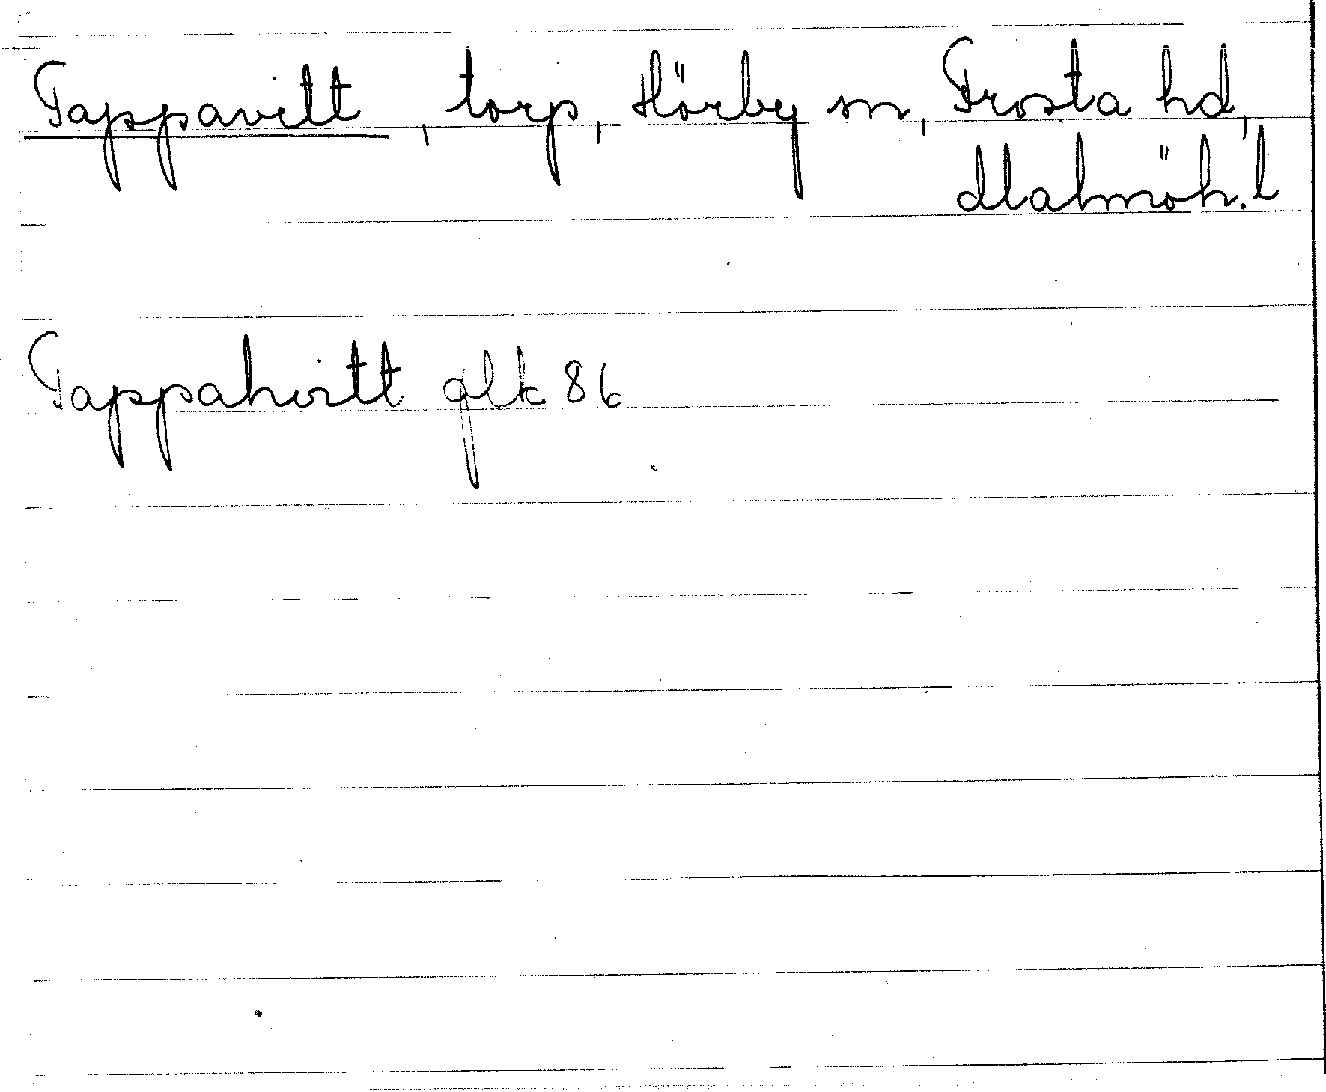 Tappavitt, torp, Hörby sn, Frosta hd,
Malmöh. l
Tappahvitt glk 86